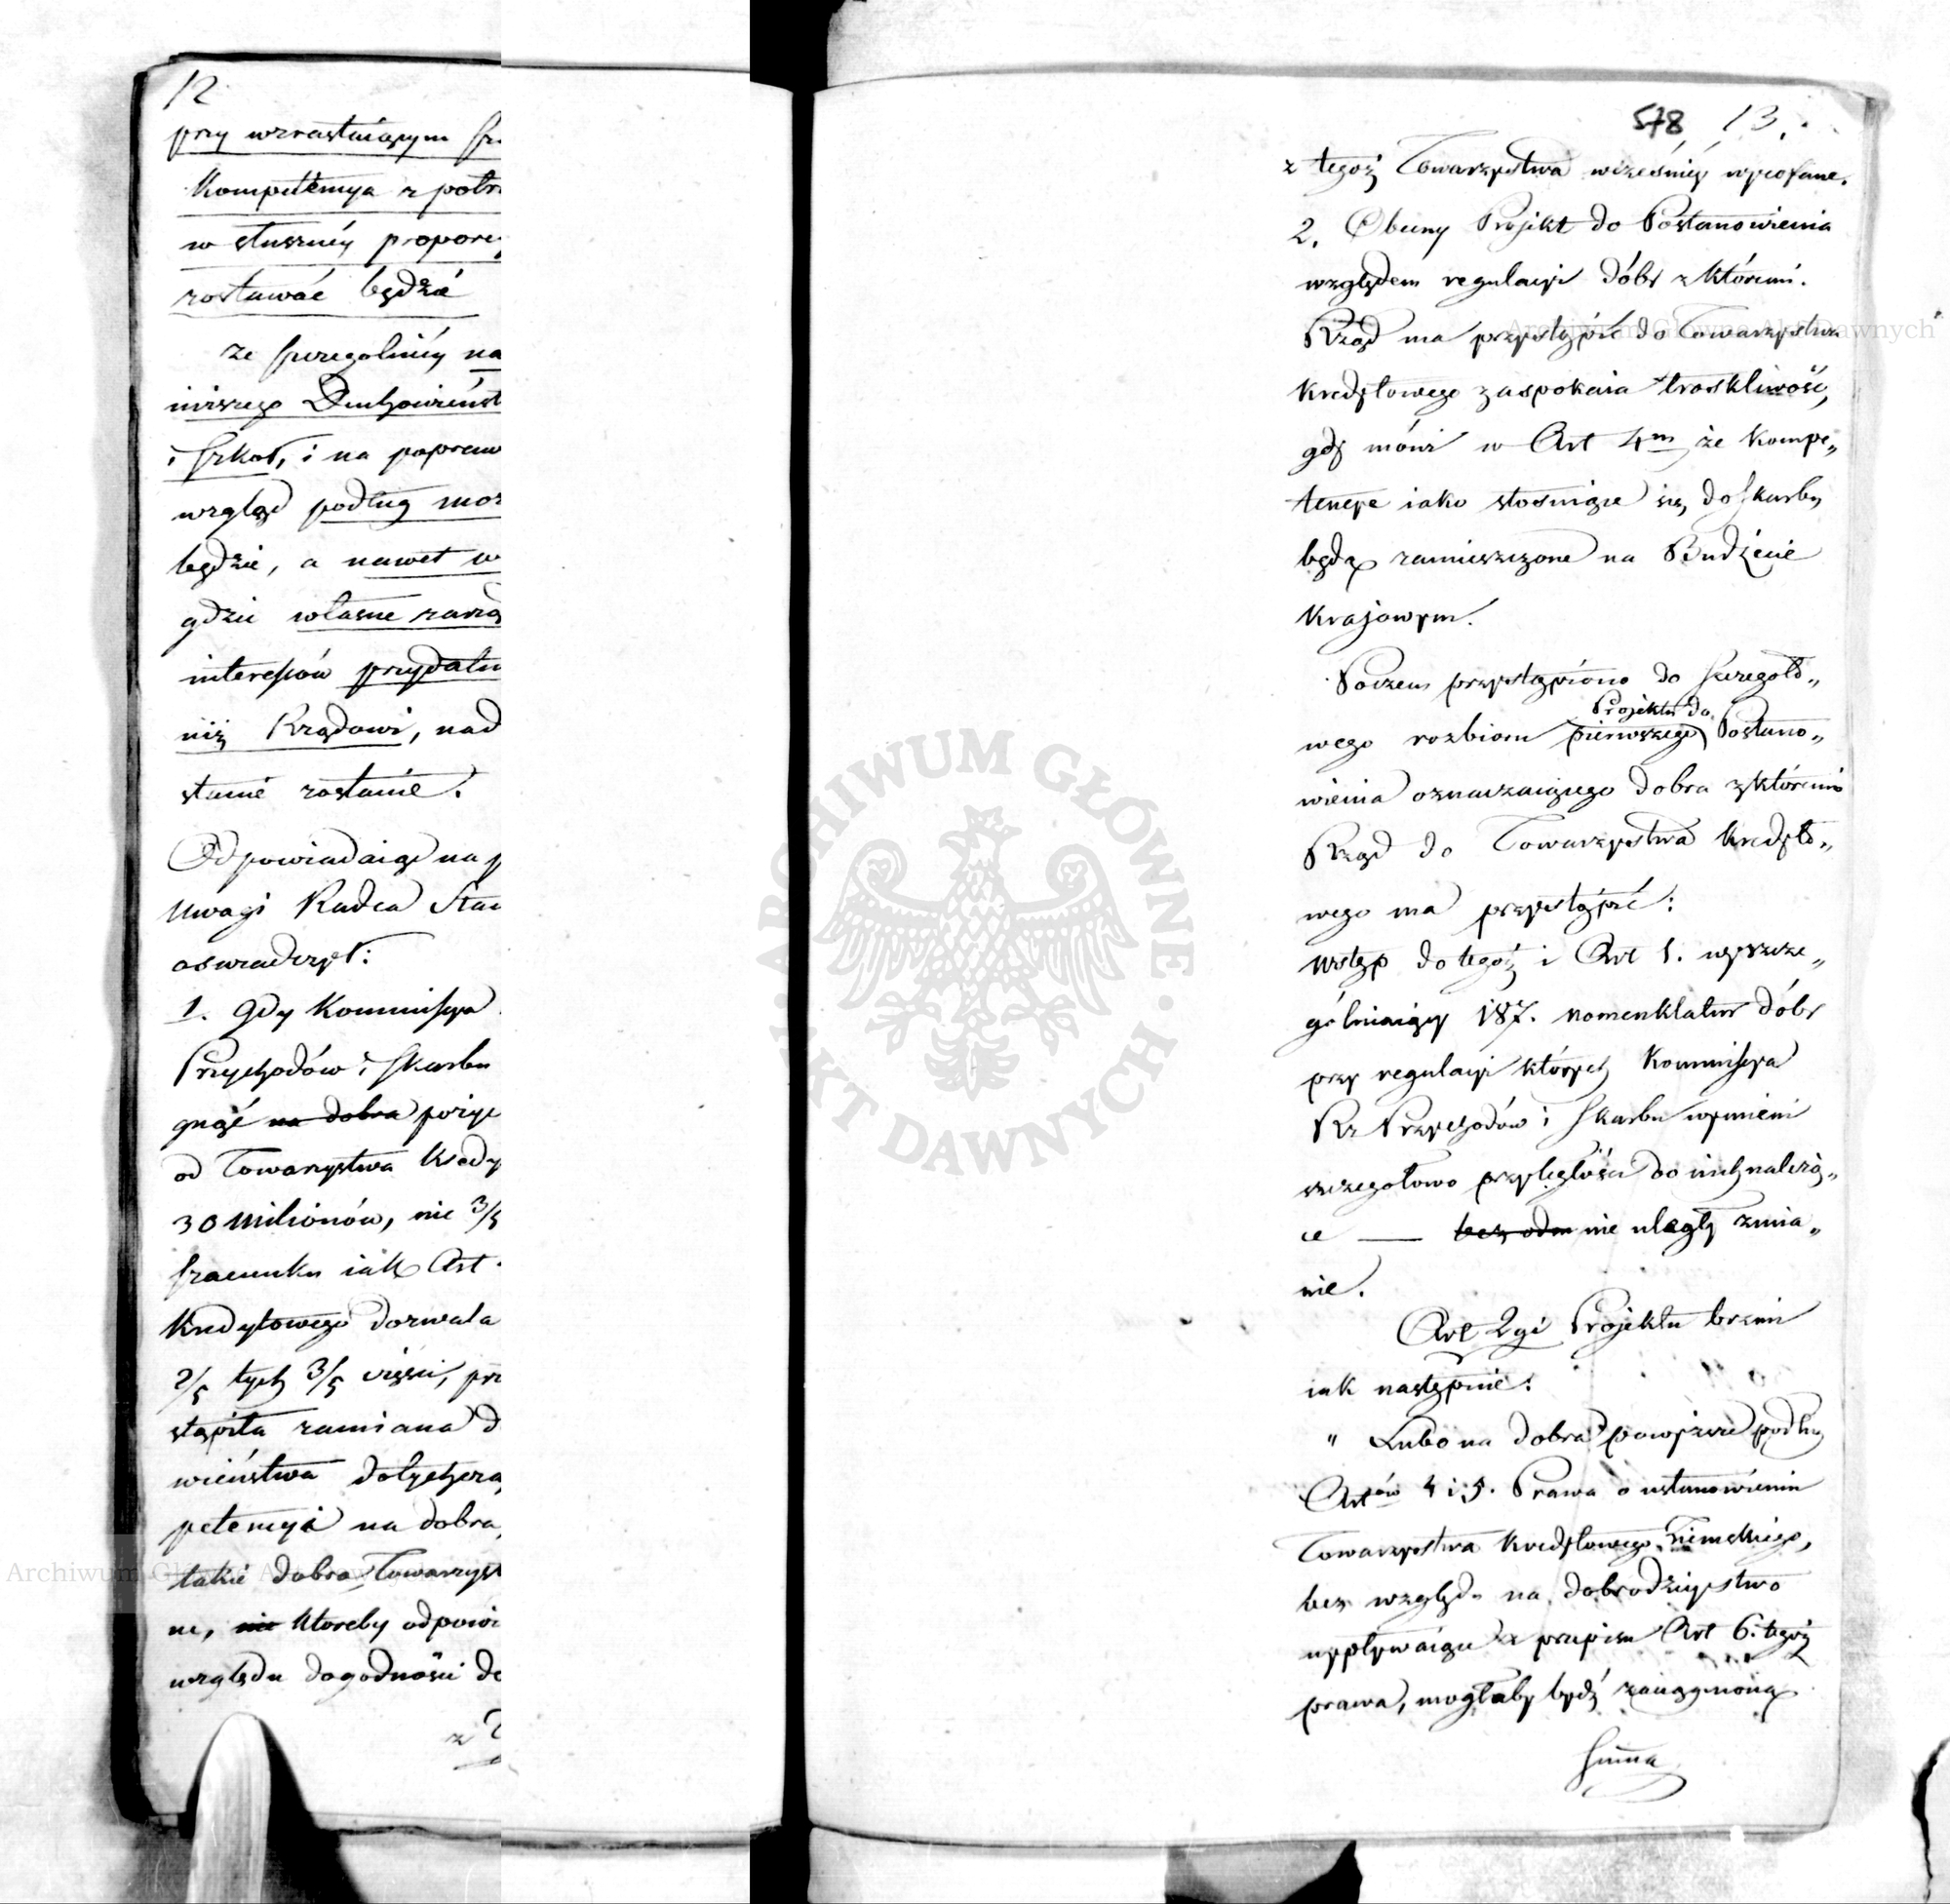 12
przy wzrastaiącym sza
Kompetencya z potr
w słuszney proporcy
zostawać będzie
ze szczegolniey na
niższego Duchowieńst
i szkoł, i na popraw
wzgląd podług moż
będzie, a nawet w
gdzie własne zarzą
interessów przydatn
niż Rządowi, nad
stanie zostanie.
Odpowiadaiąc na p
Uwagi Radca Stan
oswiadczył:
1. Gdy Kommissya
Przychodów i Skarbu
gnąć na dobra pożyc
od Towarzystwa Kredy
30 Milionów, nie 3/5
szacunku iak Art.
Kredytowego dozwala
2/5 tych 3/5 części, prz
stąpiła zamiana d
wieństwa dotychcza
petencyi na dobra,
takie dobra Towarzyst
ne, nie ktoreby odpowi
względu dogodności do
z T
578 13.
z tegoż Towarzystwa wcześniéy wycofane.
2. Obecny Projekt do Postanowienia
względem regulacyi dóbr z któremi
Rząd ma przystąpić do Towarzystwa
Kredytowego zaspokaia troskliwość,
gdy mówi w Art 4m że Kompe„
tencye iako stosuiące się do Skarbu
będą zamieszczone na Budżecie
Krajowym.
Poczem przystąpiono do szczegóło„
Projektu do
wego rozbioru pierwszego Postano„
wienia oznaczaiącego dobra z któremi
Rząd do Towarzystwa Kredyto„
wego ma przystąpić:
Wstęp do tegoż i Art 1. wyszcze„
gólniaiący 187. nomenklatur dóbr
przy regulacyi których Kommissya
Rz Przychodów i Skarbu wymieni
szczegołowo przyległości do nich należą„
ce — bez odm nie uległy zmia„
nie.
Art 2gi Projektu brzmi
iak następuie:
" Lubo na dobra powyższe podług
Artów 4 i 5. Prawa o ustanowieniu
Towarzystwa Kredytowego Ziemskiego,
bez względu na dobrodzieystwo
wypływaiące z przepisu Art 6. tegoż
prawa, mogłaby bydź zaciągnioną
summa
Archiwum Główne Akt Dawnych
Archiwum Główne Akt Dawnych
ARCHIWUM GŁÓWNE AKT DAWNYCH